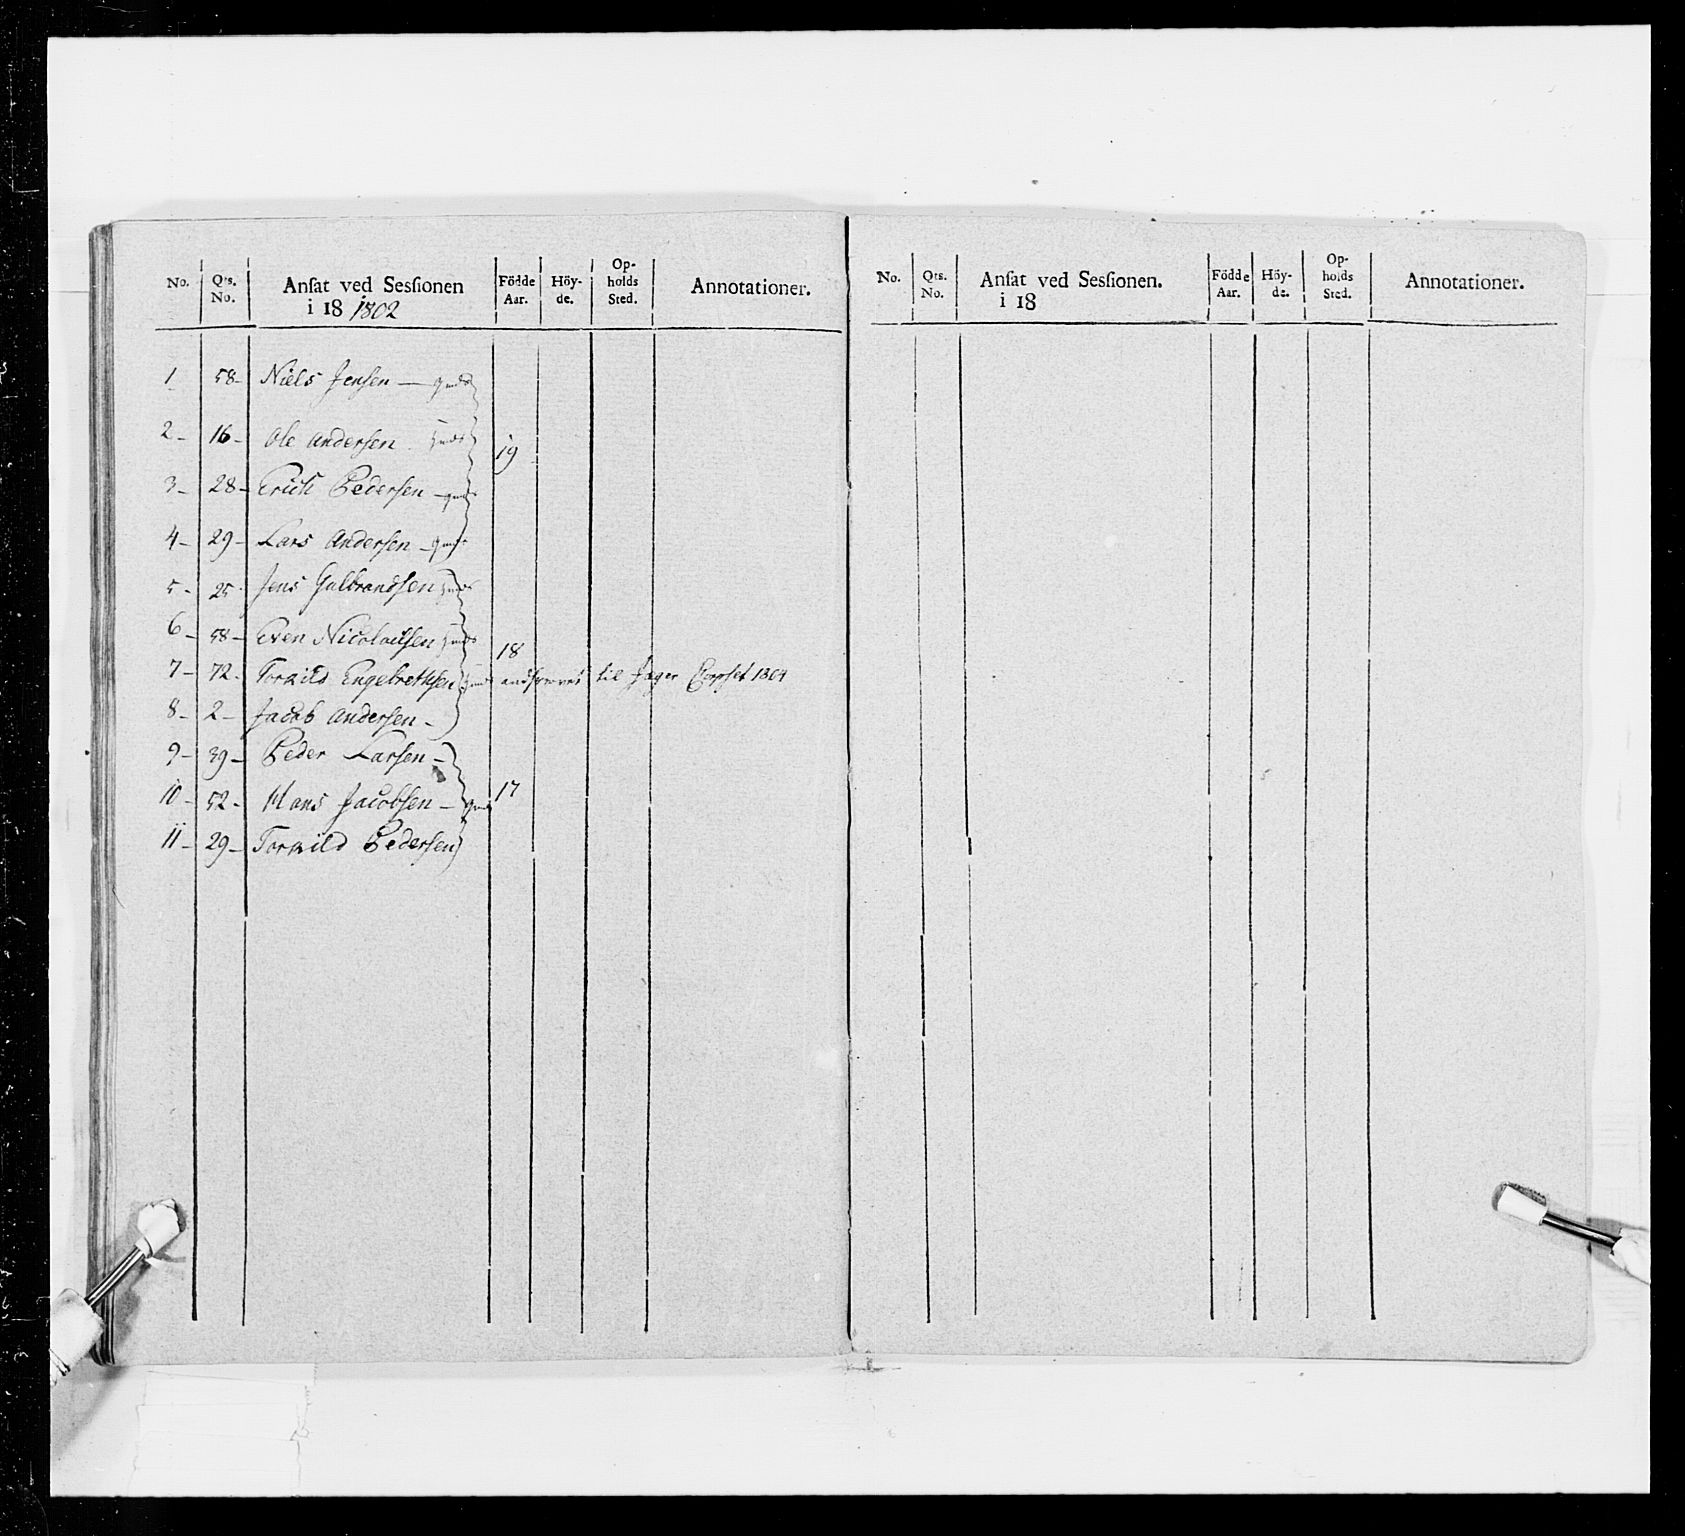 No. Qts. No. Ansat ved Sessionen i 18 1802 Födde Aar. Höy-de. Op-holds Sted. Annotationer.
1 58- Niels Jensen —
2- 16- Ole Andersen 19
3- 28- Erich Pedersen -
4- 29- Lars Andersen -
5- 25 Jens Gulbrandsen
6- 58- Even Nicolaisen 18
7- 72- Torkild Engebrethsen til Jæger Corpset 1804
8- 2- Jacob Andersen -
9- 39- Peder Larsen -
10- 52- Hans Jacobsen - 17
11- 29- Torkild Pedersen
No. Qts. No. Ansat ved Sessionen. i 18 Födde Aar. Höy-de. Op-holds Sted. Annotationer.